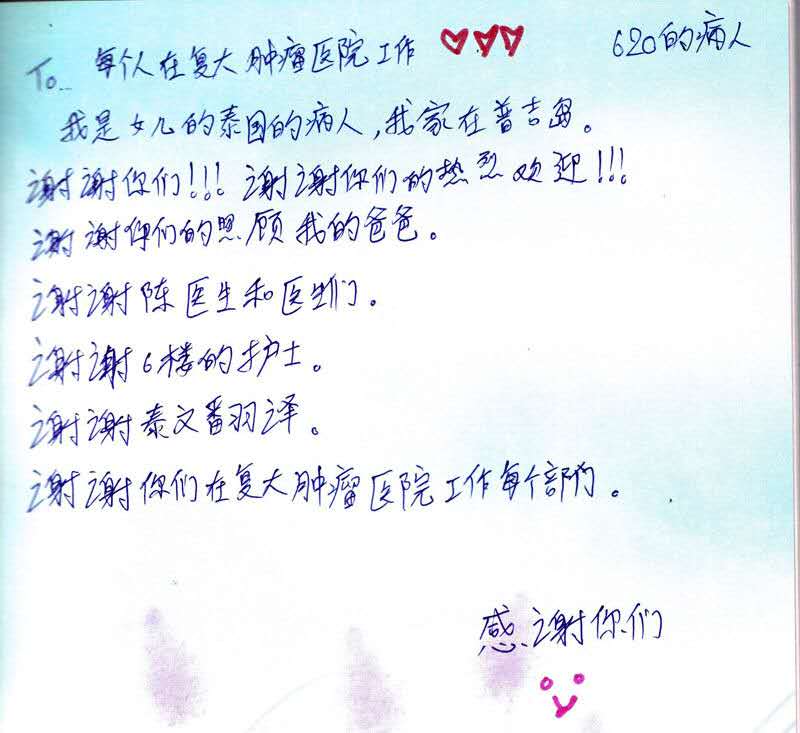 620的病人
To... 每个人在复大肿瘤医院工作
我是女儿的泰国的病人,我家在普吉岛。
谢谢你们!!! 谢谢你们的热烈欢迎!!!
谢谢你们的照顾我的爸爸。
谢谢陈医生和医生们。
谢谢6楼的护士。
谢谢泰文翻译。
谢谢你们在复大肿瘤医院工作每个部门。
感谢你们